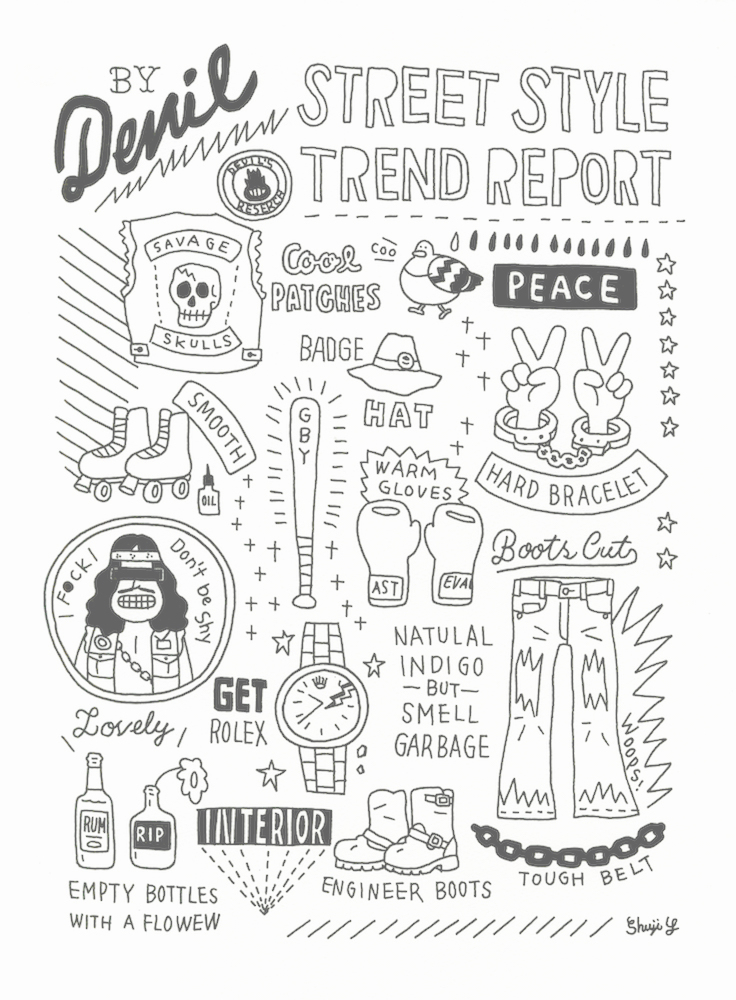 BY
Denil
STREET STYLE
TREND REPORT
DEVIL'S
RESERCH
SAVAGE
SKULLS
Cool
PATCHES
COO
PEACE
BADGE
HAT
SMOOTH
OIL
GBY
WARM
GLOVES
AST
EVA
HARD BRACELET
Boots Cut
I F●CK!
Don't be shy
Lovely
GET
ROLEX
NATULAL
INDIGO
—BUT—
SMELL
GARBAGE
WOOPS!
RUM
RIP
INTERIOR
EMPTY BOTTLES
WITH A FLOWEW
ENGINEER BOOTS
TOUGH BELT
Shuji Y